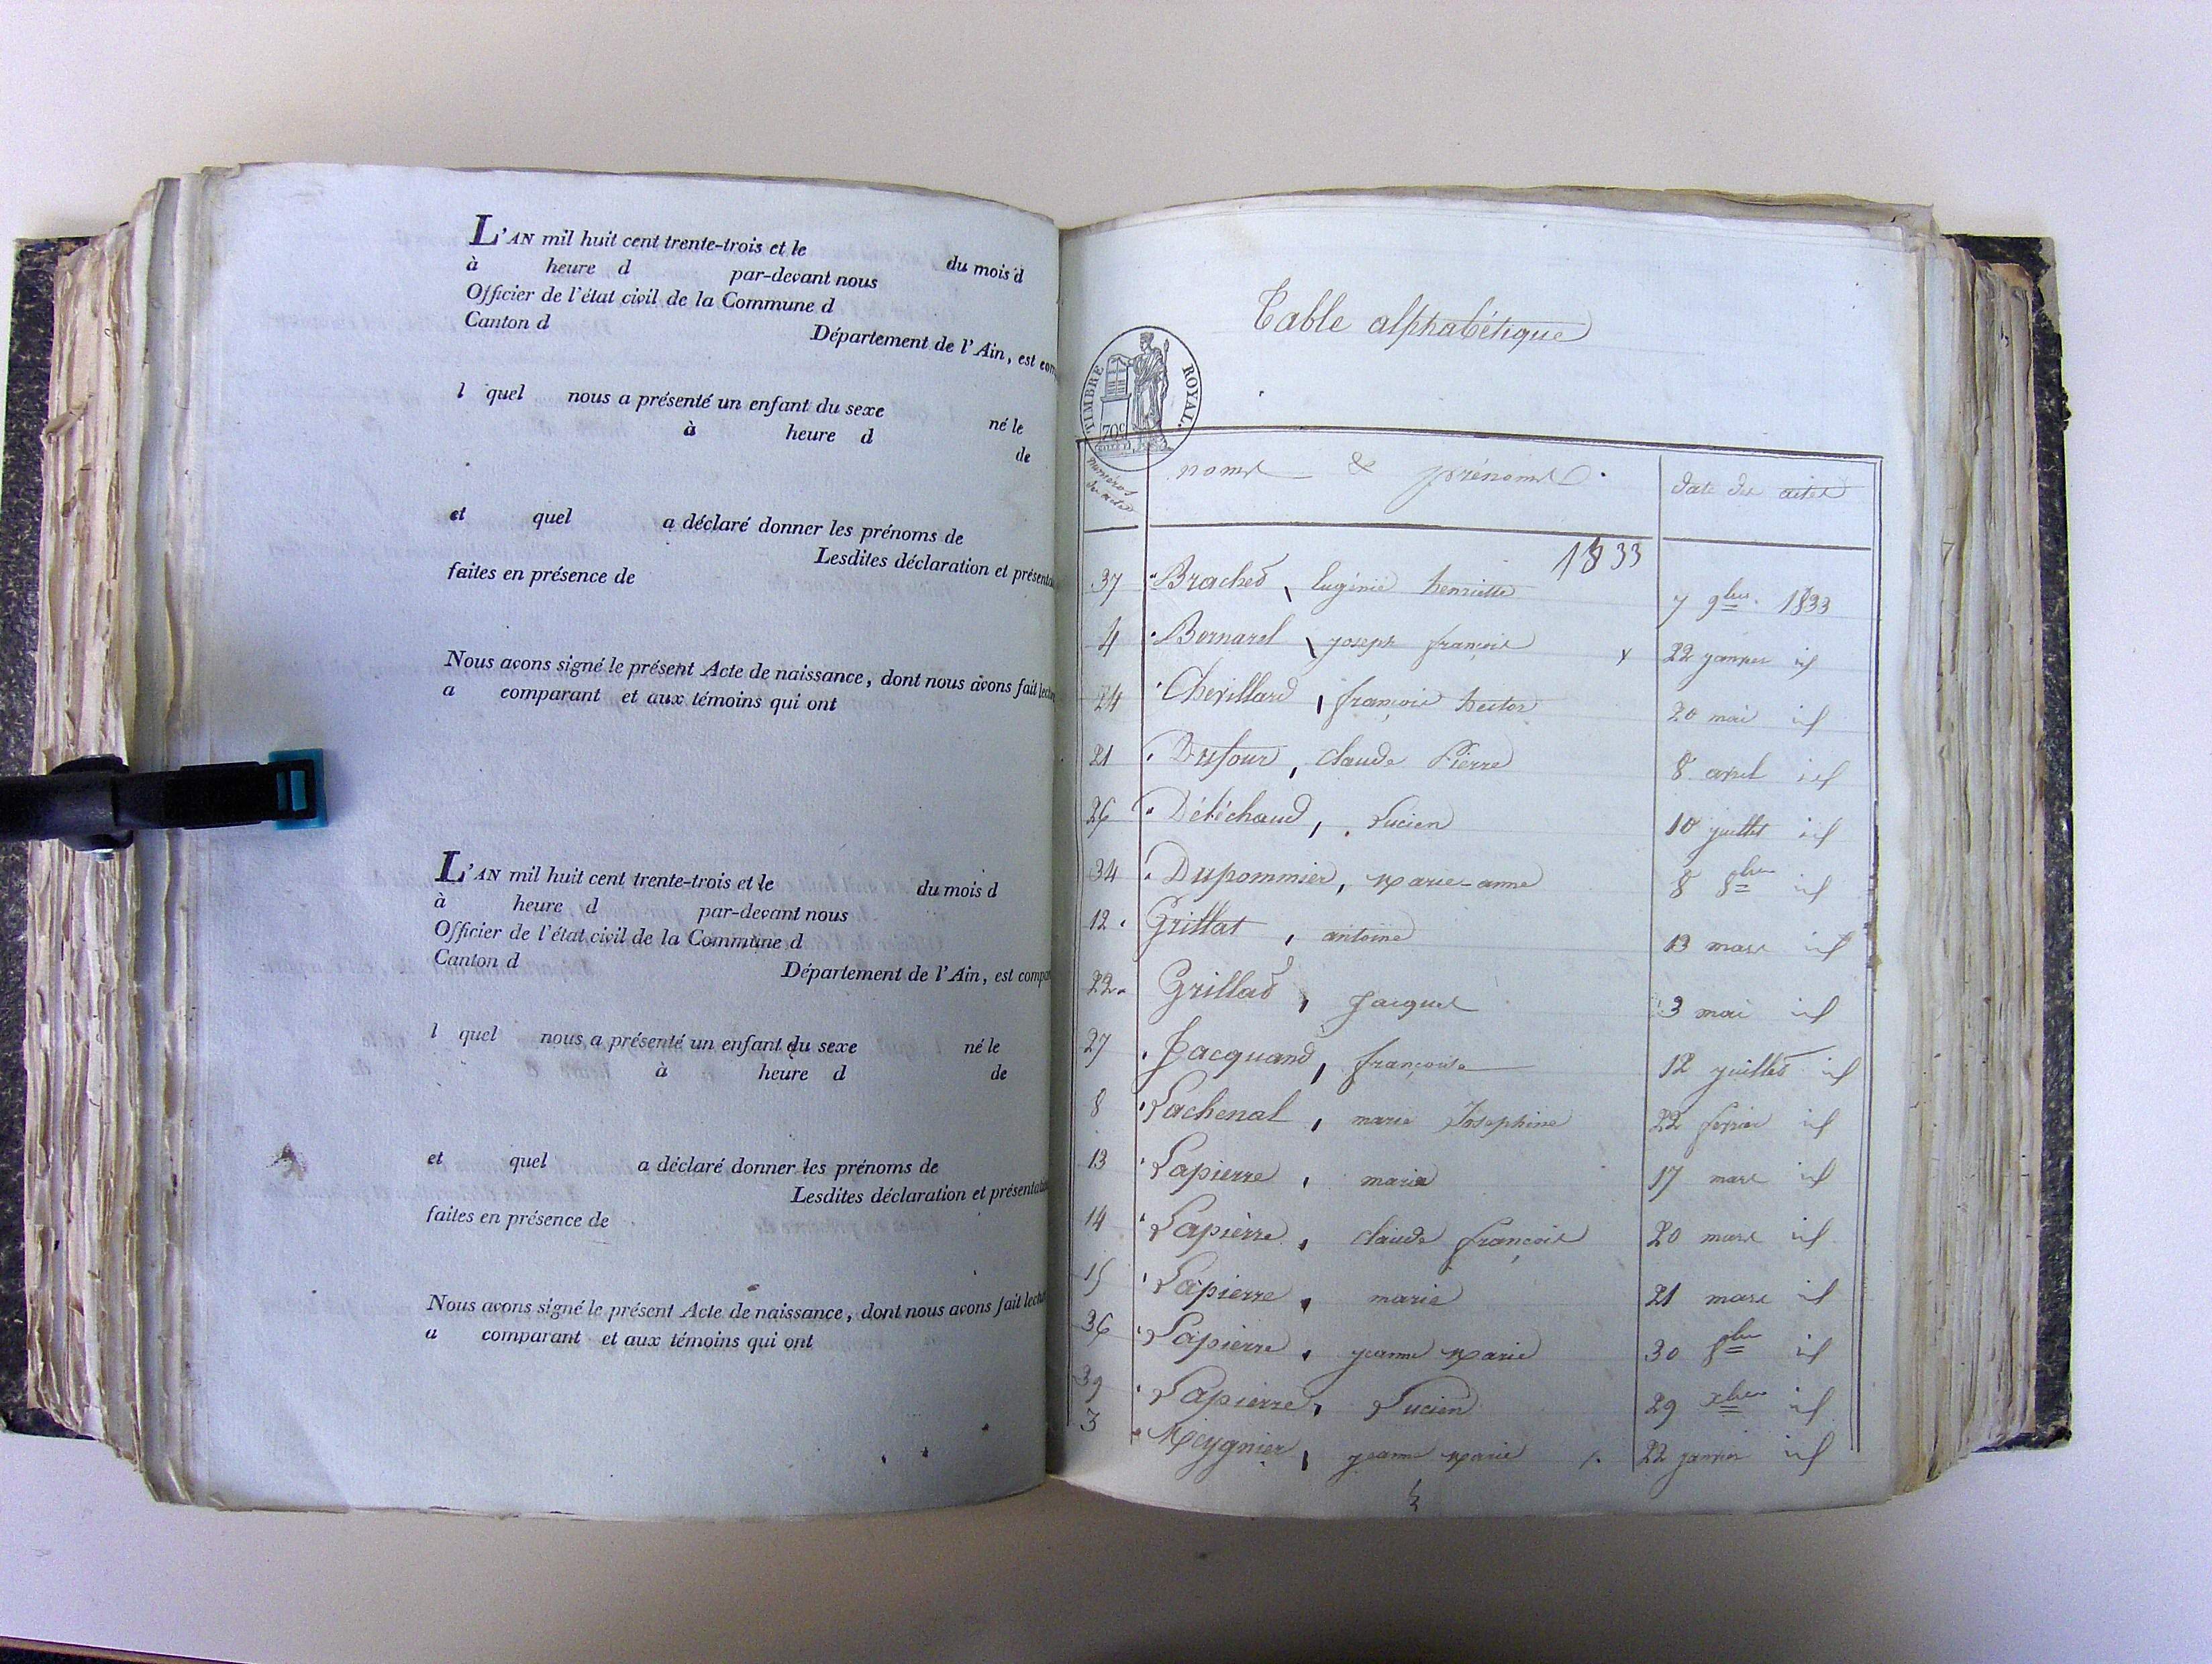 L'AN mil huit cent trente-trois et le du mois d
à heure d par-devant nous
Officier de l'état civil de la Commune d
Canton d Département de l'Ain, est com
l quel nous a présenté un enfant du sexe né le
à heure d de
et quel a déclaré donner les prénoms de
Lesdites déclaration et présenta
faites en présence de
Nous avons signé le présent Acte de naissance, dont nous avons fait lectu
a comparant et aux témoins qui ont
L'AN mil huit cent trente-trois et le du mois d
à heure d par-devant nous
Officier de l'état civil de la Commune d
Canton d Département de l'Ain, est compar
l quel nous a présenté un enfant du sexe né le
à heure d de
et quel a déclaré donner les prénoms de
Lesdites déclaration et présentati
faites en présence de
Nous avons signé le présent Acte de naissance, dont nous avons fait lectu
a comparant et aux témoins qui ont
Table alphabétique
TIMBRE ROYAL.
70c
numéros des actes noms & prénoms date des actes
1833
37 Brachet, Eugénie henriette 7 9bre 1833
4 Bornarel, joseph françois x 22 janvier id
24 Chevillard, françois hector 20 mai id
21 Dufour, claude Pierre 8 avril id
26 Déléchaud, Lucien 10 juillet id
34 Dupommier, marie-anne 8 8bre id
12 Grillat, antoine 13 mars id
22 Grillat, jacques 3 mai id
27 Jacquand, françoise 12 juillet id
8 Lachenal, marie Josephine 22 fevrier id
13 Lapierre, marie 17 mars id
14 Lapierre, claude françois 20 mars id
15 Lapierre, marie 21 mars id
36 Lapierre, jeanne marie 30 8bre id
39 Lapierre, Lucien 29 xbre id
3 Meygnier, jeanne marie 22 janvier id